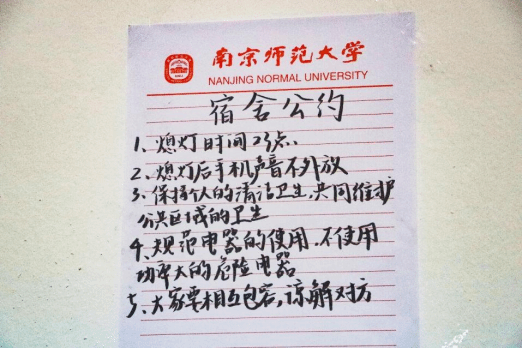 南京师范大学
NANJING NORMAL UNIVERSITY
宿舍公约
1、熄灯时间23点.
2、熄灯后手机声音不外放
3、保持个人的清洁卫生,共同维护
公共区域的卫生
4、规范电器的使用.不使用
功率大的危险电器
5、大家要相互包容,谅解对方